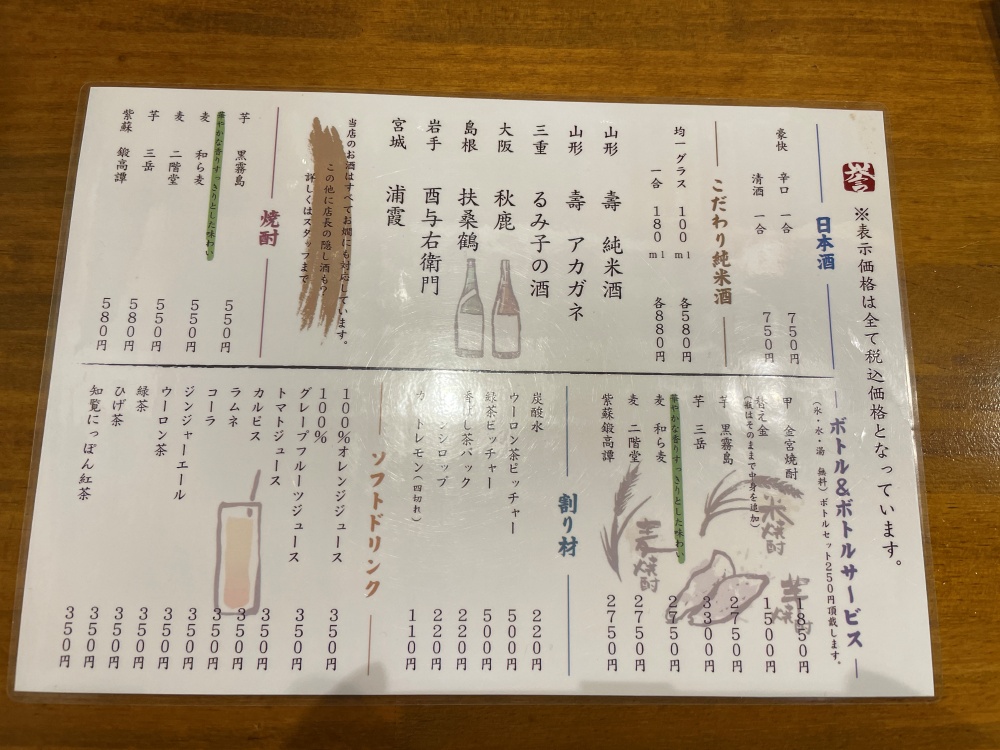 誉
※表示価格は全て税込価格となっています。
日本酒
豪快 辛口 一合 750円
清酒 一合 750円
こだわり純米酒
均一グラス 100ml 各580円
一合 180ml 各880円
山形 壽 純米酒
山形 壽 アカガネ
三重 るみ子の酒
大阪 秋鹿
島根 扶桑鶴
岩手 酉与右衛門
宮城 浦霞
当店のお酒はすべてお燗にも対応しています。
この他に店長の隠し酒も?
詳しくはスタッフまで
焼酎
芋 黒霧島 550円
華やかな香りすっきりとした味わい
麦 和ら麦 550円
麦 二階堂 550円
芋 三岳 580円
紫蘇 鍛高譚 580円
ボトル&ボトルサービス
(氷・水・湯 無料)ボトルセット250円頂戴します。
甲 金宮焼酎 1850円
替え金 1500円
(瓶はそのままで中身を追加)
芋 黒霧島 2750円
芋 三岳 3300円
華やかな香りすっきりとした味わい
麦 和ら麦 2750円
麦 二階堂 2750円
紫蘇鍛高譚 2750円
米焼酎
麦焼酎
芋焼酎
割り材
炭酸水 220円
ウーロン茶ピッチャー 500円
緑茶ピッチャー 500円
茶パック 220円
シロップ 220円
カットレモン(四切れ) 110円
ソフトドリンク
100%オレンジジュース 350円
100%グレープフルーツジュース 350円
トマトジュース
カルピス 350円
ラムネ 350円
コーラ 350円
ジンジャーエール 350円
ウーロン茶 350円
緑茶 350円
ひげ茶 350円
知覧にっぽん紅茶 350円